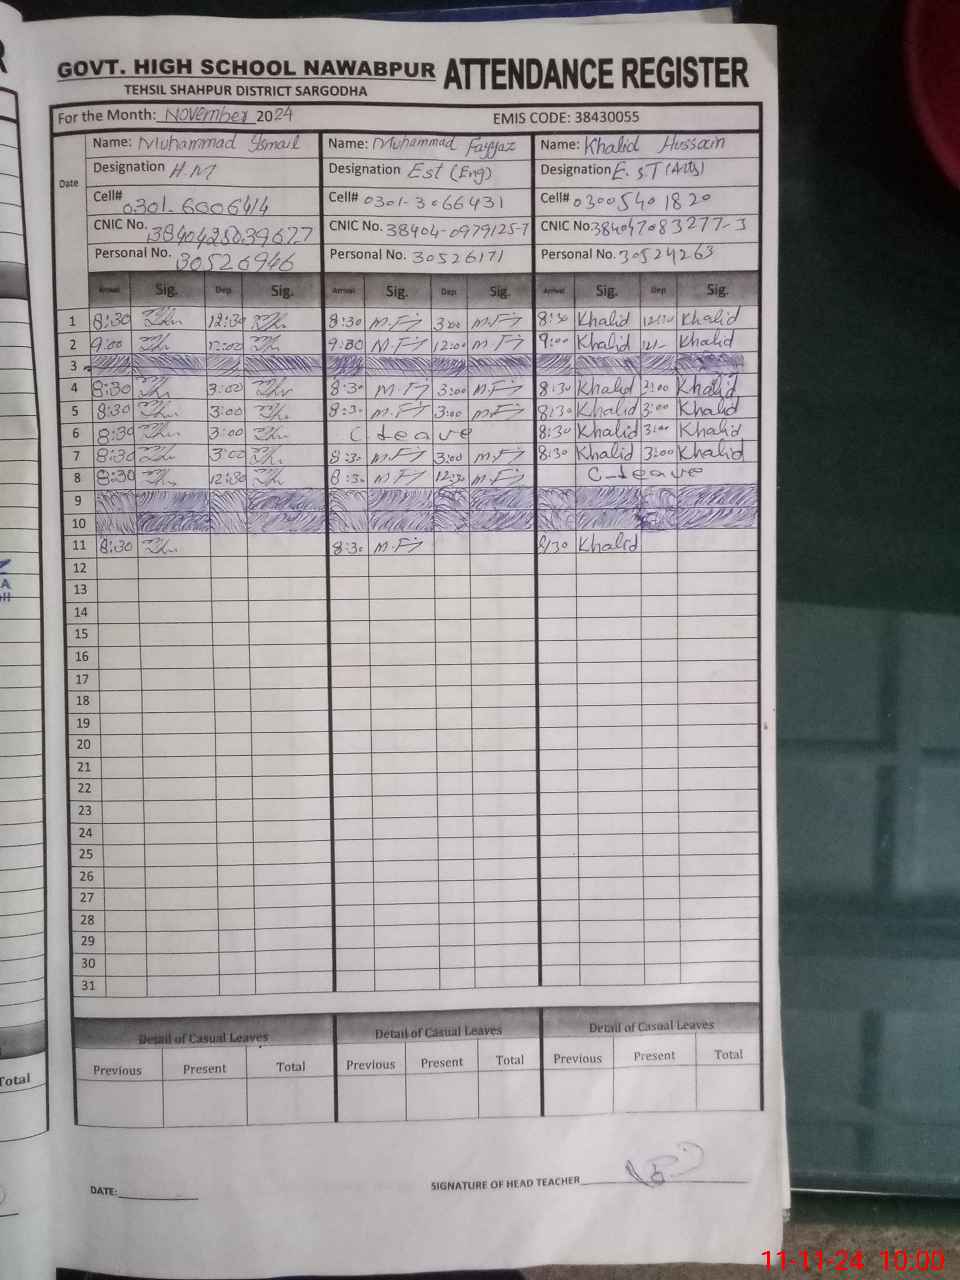 GOVT. HIGH SCHOOL NAWABPUR ATTENDANCE REGISTER
TEHSIL SHAHPUR DISTRICT SARGODHA
For the Month: November 2024 EMIS CODE: 38430055
Date
Name: Muhammad Ismail Name: Muhammad Fayyaz Name: Khalid Hussain
Designation H.M Designation Est (Eng) Designation E.ST (Arts)
Cell# 0301-6006414 Cell# 0301-3066431 Cell# 03005401820
CNIC No. CNIC No. 38404-0979125-7 CNIC No 384047083277-3
Personal No. 30526946 Personal No. 30526171 Personal No. 30524263
Arrival Sig. Dep. Sig. Arrival Sig. Dep. Sig. Arrival Sig. Dep. Sig.
1 8:30 12:30 8:30 3:00 8:30 Khalid Khalid
2 9:00 12:00 9:00 12:00 9:00 Khalid 12/- Khalid
3
4 8:30 3:00 8:30 3:00 8:30 Khalid 3:00 Khalid
5 8:30 3:00 8:30 3:00 8:30 Khalid 3:00 Khalid
6 8:30 3:00 C-leave 8:30 Khalid 3:00 Khalid
7 8:30 3:00 8:30 3:00 8:30 Khalid 3:00 Khalid
8 8:30 12:30 8:30 12:30 C-leave
9
10
11 8:30 8:30 8/30 Khalid
12
13
14
15
16
17
18
19
20
21
22
23
24
25
26
27
28
29
30
31
Detail of Casual Leaves Detail of Casual Leaves Detail of Casual Leaves
Previous Present Total Previous Present Total Previous Present Total
DATE: SIGNATURE OF HEAD TEACHER
Total
11-11-24 10:00